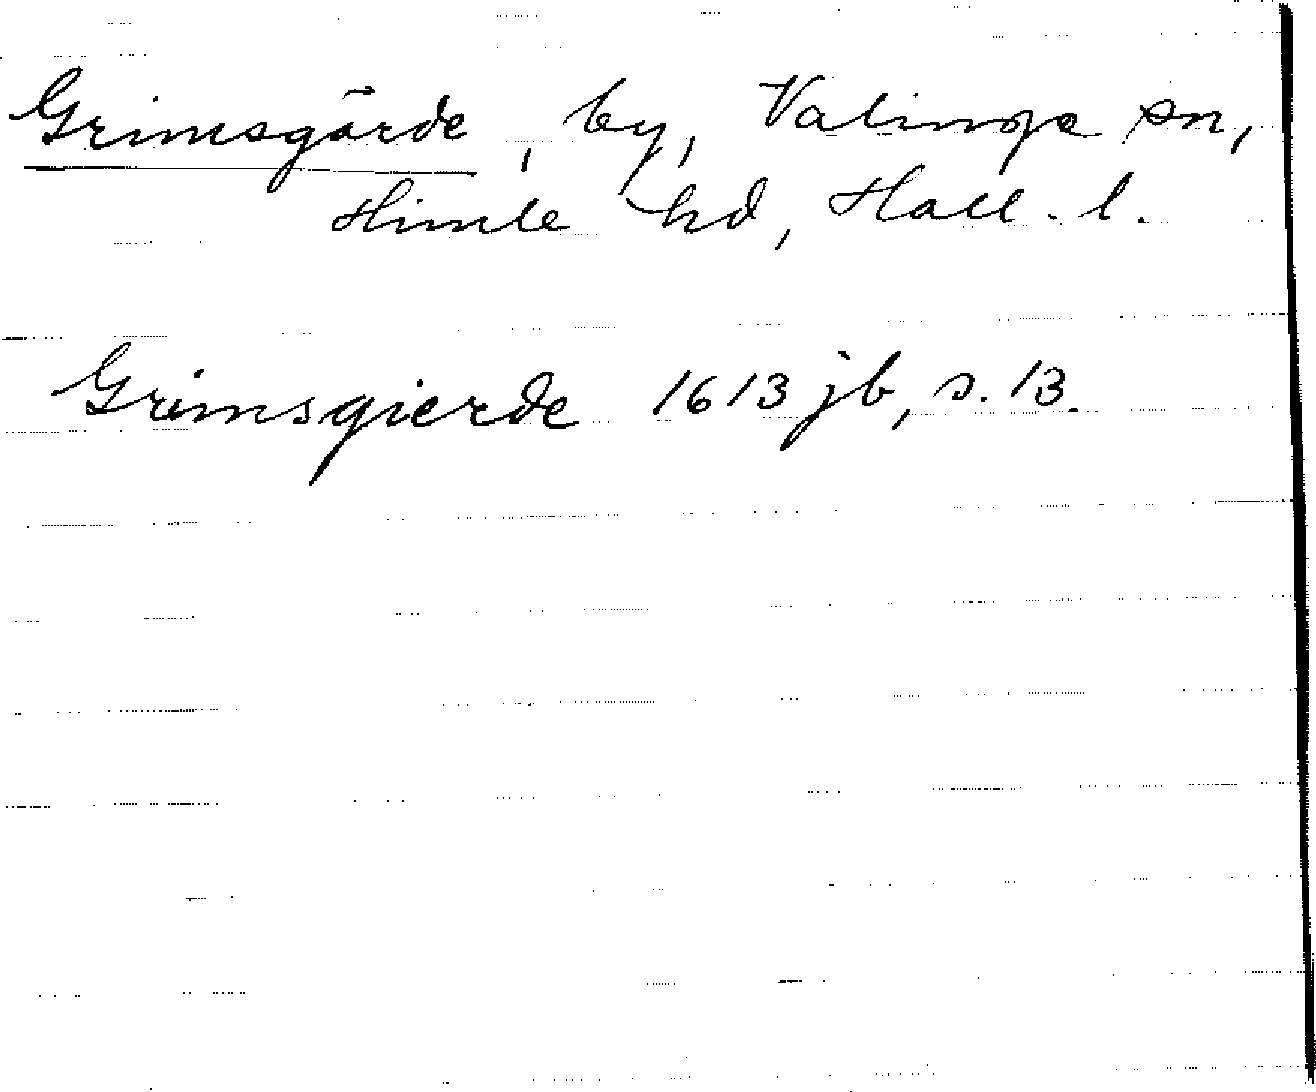 Grimsgärde, by, Valinge sn,
Himle hd, Hall. l.
Grimsgierde 1613 jb, s. 13.